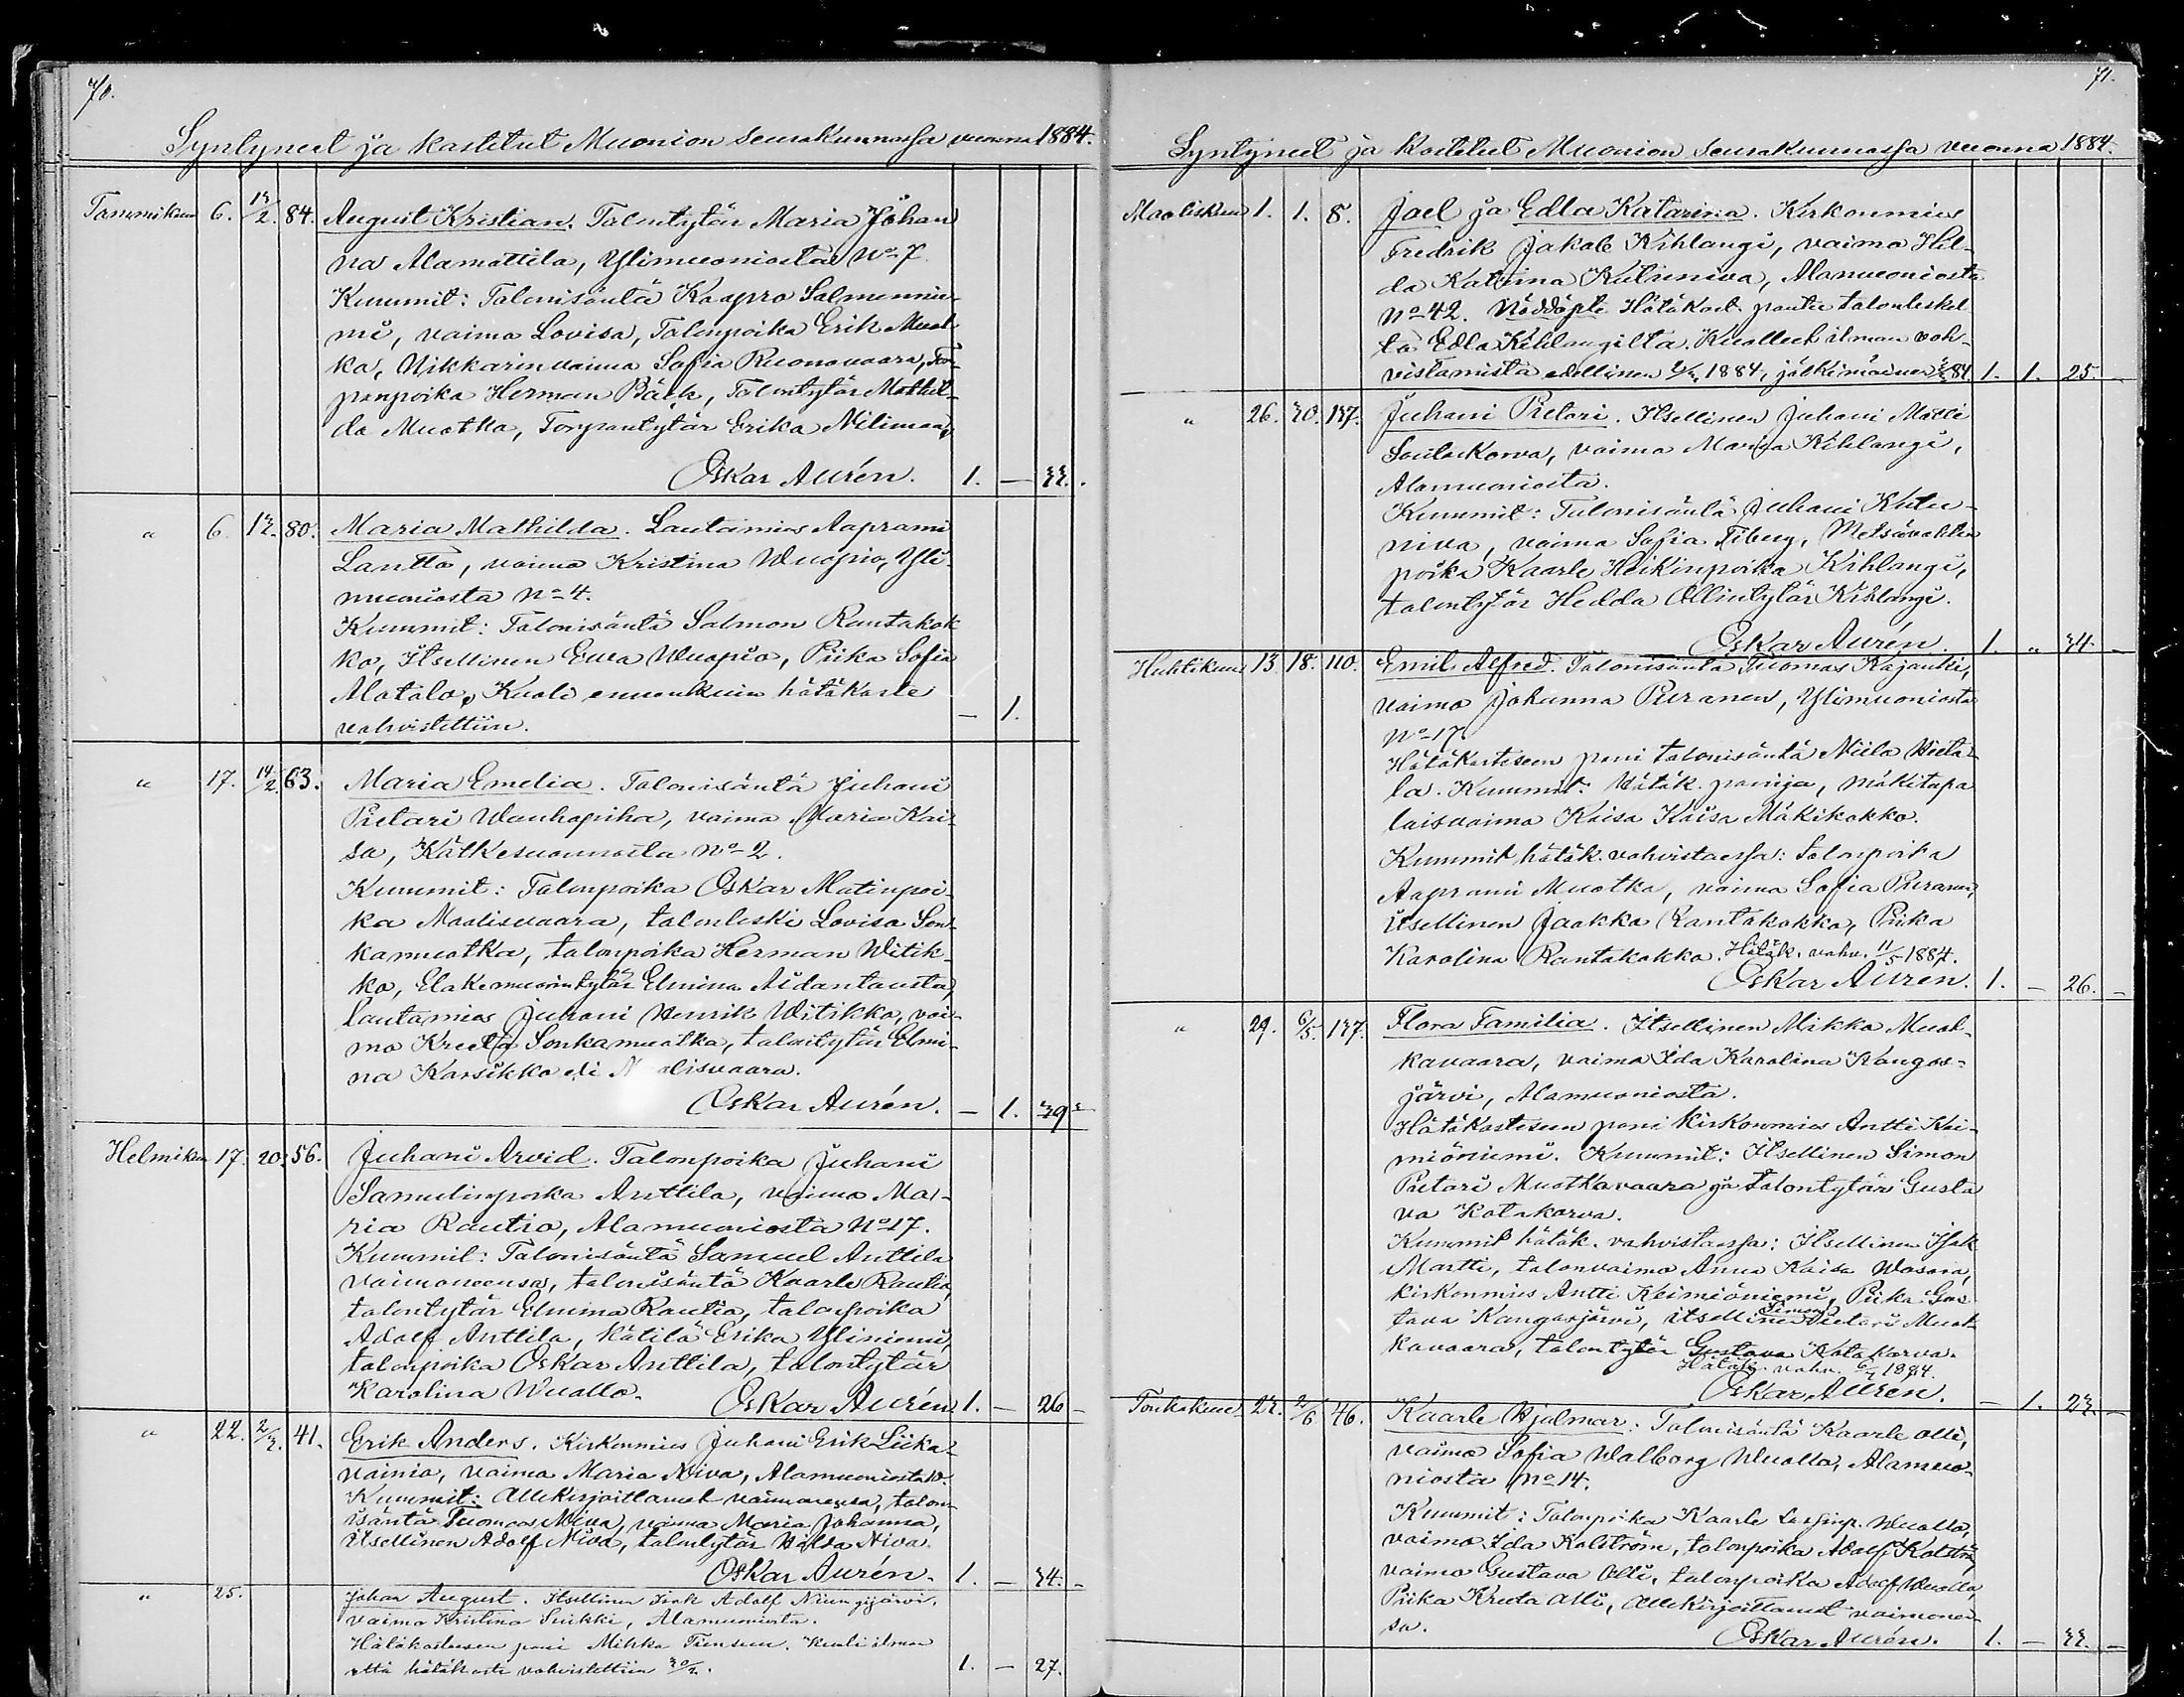 70.
Syntyneet ja kastetut Muonion seurakunnassa vuonna 1884.
Tammikuu 6. 13/2. 84. August Kristian. Talontytär Maria Johan
na Alamattila, Ylimuoniosta No 7.
Kummit: Talonisäntä Kaapro Salmennie
mi, vaimo Lovisa, Talonpoika Erik Muot
ka, Nikkarinvaimo Sofia Ruonavaara, Tor-
panpoika Herman Bäck, Talontytär Mathil-
da Muotka, Torpantytär Erika Nilimaa,
Oskar Aurén. 1. — 33.
" 6. 13. 80. Maria Mathilda. Lautamies Aaprami
Lantto, vaimo Kristina Wuopio, Yli-
muoniosta No 4.
Kummit: Talonisäntä Salmon Rantakok
ko, Itsellinen Ewa Wuopio, Piika Sofia
Alatalo, Kuoli ennenkuin hätäkaste
vahvistettiin. — 1.
" 17. 14/2. 63. Maria Emelia. Talonisäntä Juhani
Pietari Wanhapiha, vaimo Maria Kai-
sa, Kätkesuannosta No 2.
Kummit: Talonpoika Oskar Matinpoi-
ka Maalisvaara, talonleski Lovisa Son-
kamuotka, talonpoika Herman Witik-
ko, Elakemuorintytär Elmina Aidantausta,
lautamies Juhani Henrik Witikko, vai-
mo Kreeta Sonkamuotka, talontytär Elmi-
na Karsikko eli alisvaara.
Oskar Aurén. — 1. 39
Helmikuu 17. 20. 56. Juhani Arvid. Talonpoika Juhani
Samulinpoika Anttila, vaimo Ma-
ria Rautio, Alamuoniosta No 17.
Kummit: Talonisäntä Samuel Anttila
vaimoneensa, talonisäntä Kaarle Rautio,
talontytär Elmina Rautio, talonpoika
Adolf Anttila, kätilä Erika Yliniemi,
talonpoika Oskar Anttila, talontytär
Karolina Wuollo. Oskar Aurén 1. — 26 —
" 22. 2/3. 41. Erik Anders. Kirkonmies Juhani Erik Liika-
vainio, vaimo Maria Niva, Alamuoniosta 10.
Kummit: Allekirjoittanut vaimonensa, talon-
isäntä Tuomas Niva, vaimo Maria Johanna,
itsellinen Adolf Niva, talontytär Hilda Niva.
Oskar Aurén. 1. — 34. —
" 25. Johan August. Itsellinen Isak Adolf
vaimo Kristina Suikki, Alamuoniosta.
Hätäkasteesen pani Mikko Kuoli ilman
että hätäkaste vahvistettiin 30/3. 1. — 27.
71.
Syntyneet ja kastetut Muonion seurakunnassa vuonna 1884.
Maaliskuu 1. 1. 8. Jael ja Edla Katarina. Kirkonmies
Fredrik Jakob Kihlangi, vaimo Hil-
da Katrina Kutuniva, Alamuoniosta
No 42. Hätäkast. pantu talonleskel
tä Edla Kihlangilta. Kuolleet ilman vah-
vistamista edellinen 1884, jälkimäinen 84. 1. 1. 25.
" 26. 30. 137. Juhani Pietari. Itsellinen Juhani Matti
Soutukorva, vaimo Maria Kihlangi,
Alamuoniosta.
Kummit: Talonisäntä Juhani Kutu-
niva, vaimo Sofia Fiberg, Metsävahdin
poika Kaarle Heikinpoika Kihlangi,
talontytär Hedda Ollintytär Kihlangi.
Oskar Aurén. 1. " 34. —
Huhtikuu 13. 18. 110. Emil Alfred. Talonisäntä Tuomas Kajanki,
vaimo Johanna Puranen, Ylimuoniosta
No 17.
Hätäkasteseen pani talonisäntä Niilo Hieta-
la. Kummit: Hätäk. panija, mäkitupa
laisvaimo Kaisa Kaisa Mäkikokko.
Kummit hätäk. vahvistaessa: talonpoika
Aaprami Muotka, vaimo Sofia Puranen,
itsellinen Jaakko Rantakokko, Piika
Karolina Rantakokko. Hätäk. vahv. 11/5 1884.
Oskar Aurén. 1. — 26. —
" 29. 6/5. 137. Flora Familia. Itsellinen Mikko Muot-
kavaara, vaimo Ida Karolina Kangos-
järvi, Alamuoniosta.
Hätäkasteseen pani kirkonmies Antti Kei-
miöniemi. Kummit: Itsellinen Simon
Pietari Muotkavaara ja talontytär Gusta
va Kotakorva.
Kummit hätäk. vahvistaessa: Itsellinen Isak
Martti, talonvaimo Anna Kaisa Wasara,
kirkonmies Antti Keimiöniemi, Piika Gus
tava Kangosjärvi, itsellinen Simon Pietari Muot-
kavaara, talontytär Gustava Kotakorva.
Hätäk. vahv. 1884.
Oskar Aurén. — 1. 23. —
Toukokuu 23. 2/6 46. Kaarle Hjalmar. Talonisäntä Kaarle Olli,
vaimo Sofia Walborg Wuollo, Alamuo-
niosta No 14.
Kummit: Talonpoika Kaarle Wuollo,
vaimo Ida Kolström, talonpoika Adolf Kolström,
vaimo Gustava Olli, talonpoika Adolf Wuollo,
Piika Kreeta Olli, Allekirjoittanut vaimonen-
sa.
Oskar Aurén. 1. — 33. —